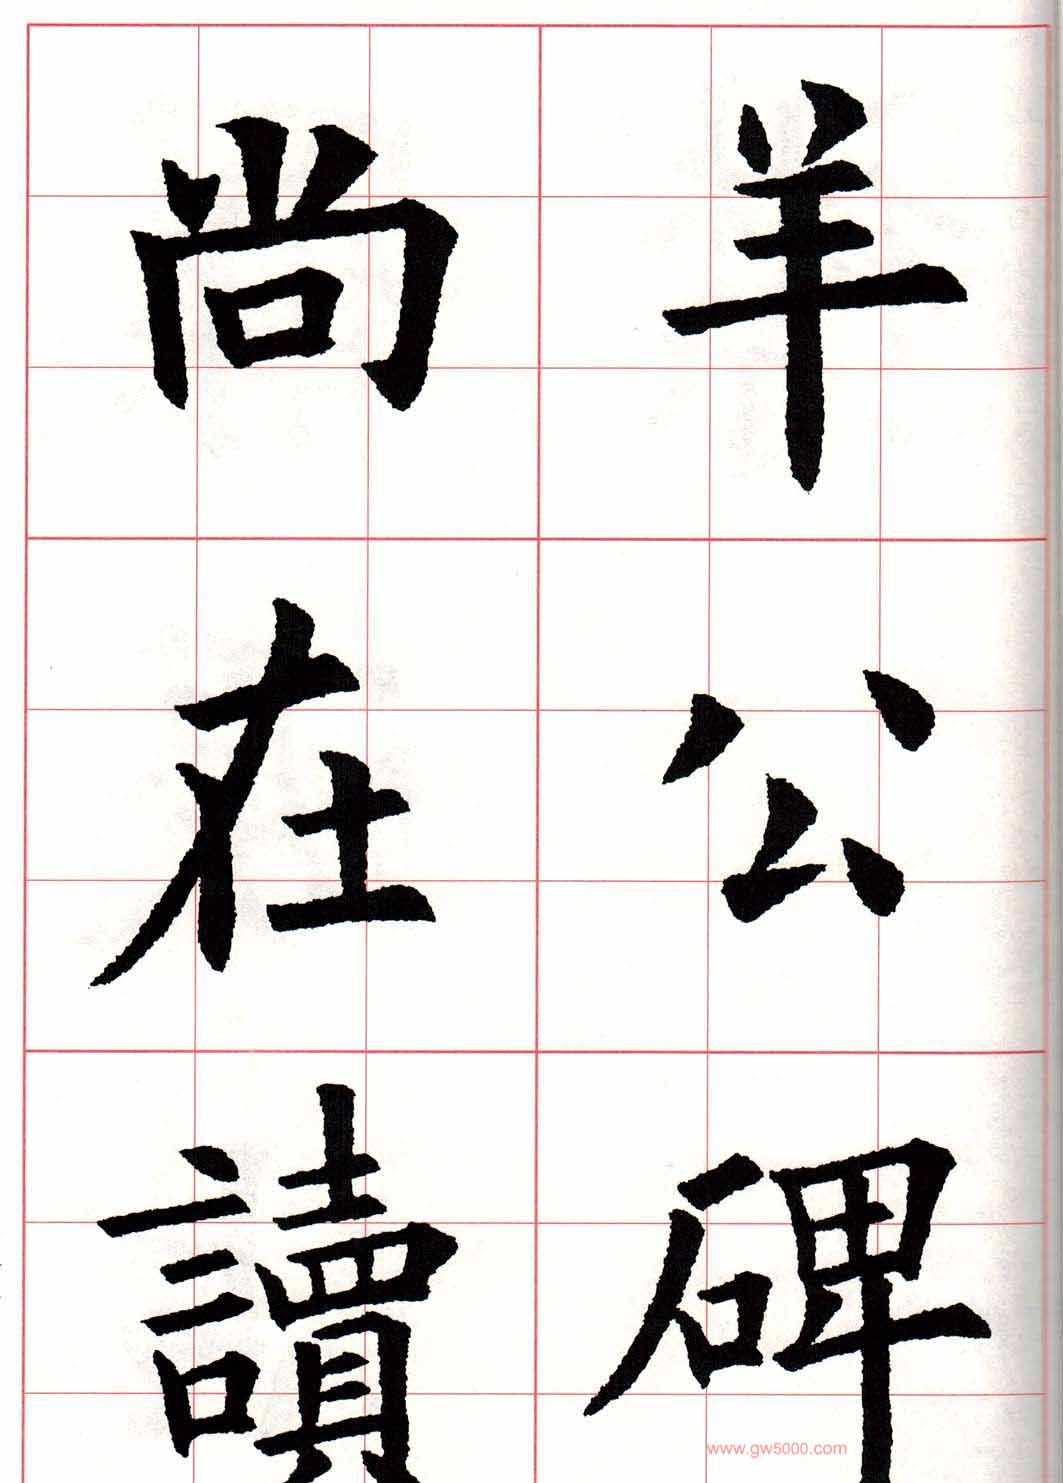 羊公碑
尚在讀
www.gw5000.com